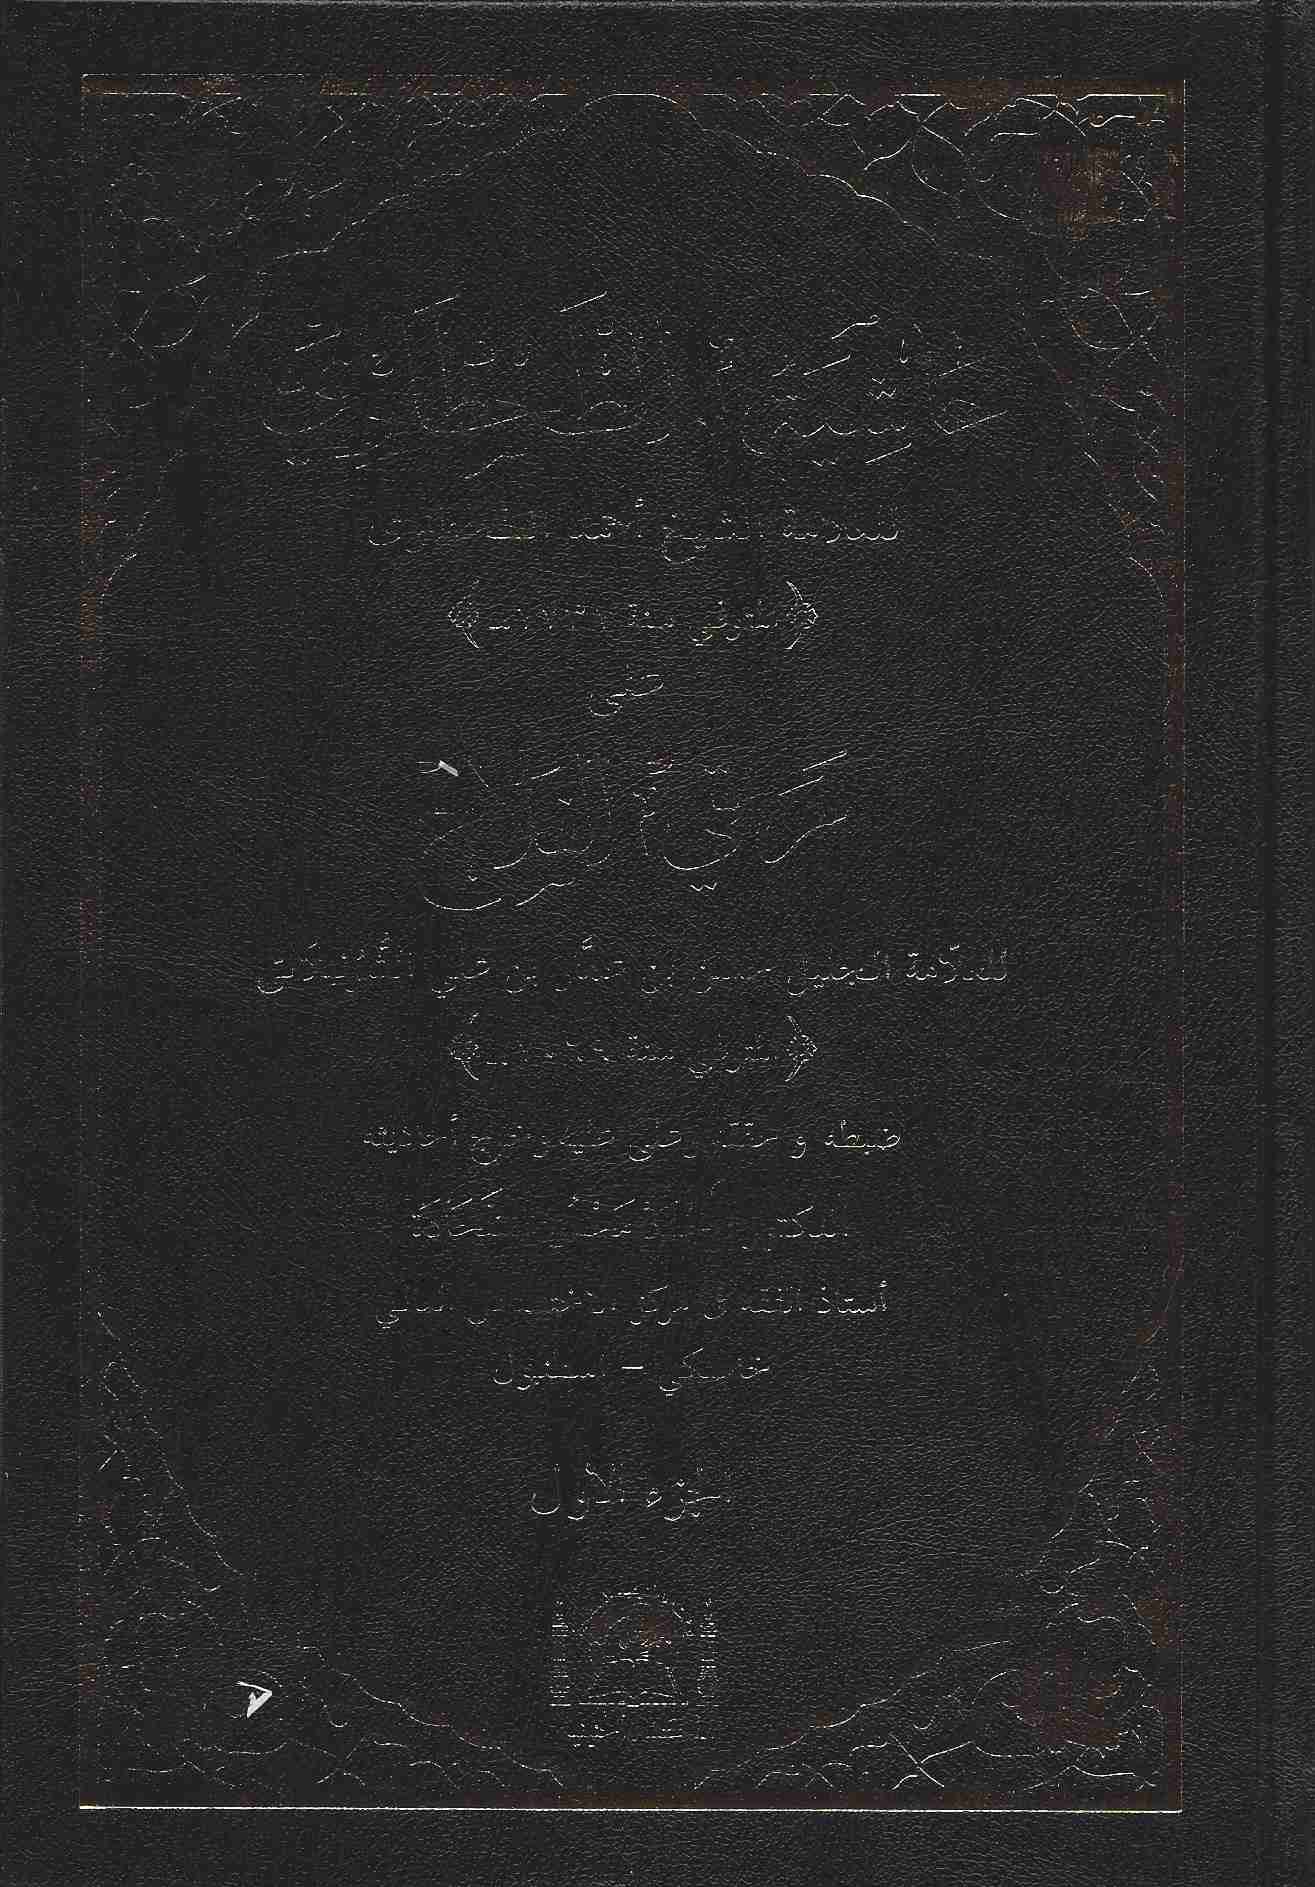 حاشية الطحطاوي
للعلامة الشيخ أحمد الطحطاوي
المتوفي سنة
على
مراقي الفلاح
للعلّامة الجليل حسن بن عمّار بن علي الشُّرُنبُلَالي
المتوفي سنة
ضبطه و حققه وعلق عليه وخرج أحاديثه
الدكتور
أستاذ الفقه في مركز الاختصاص العالي
خاسكي - استنبول
الجزء الأول